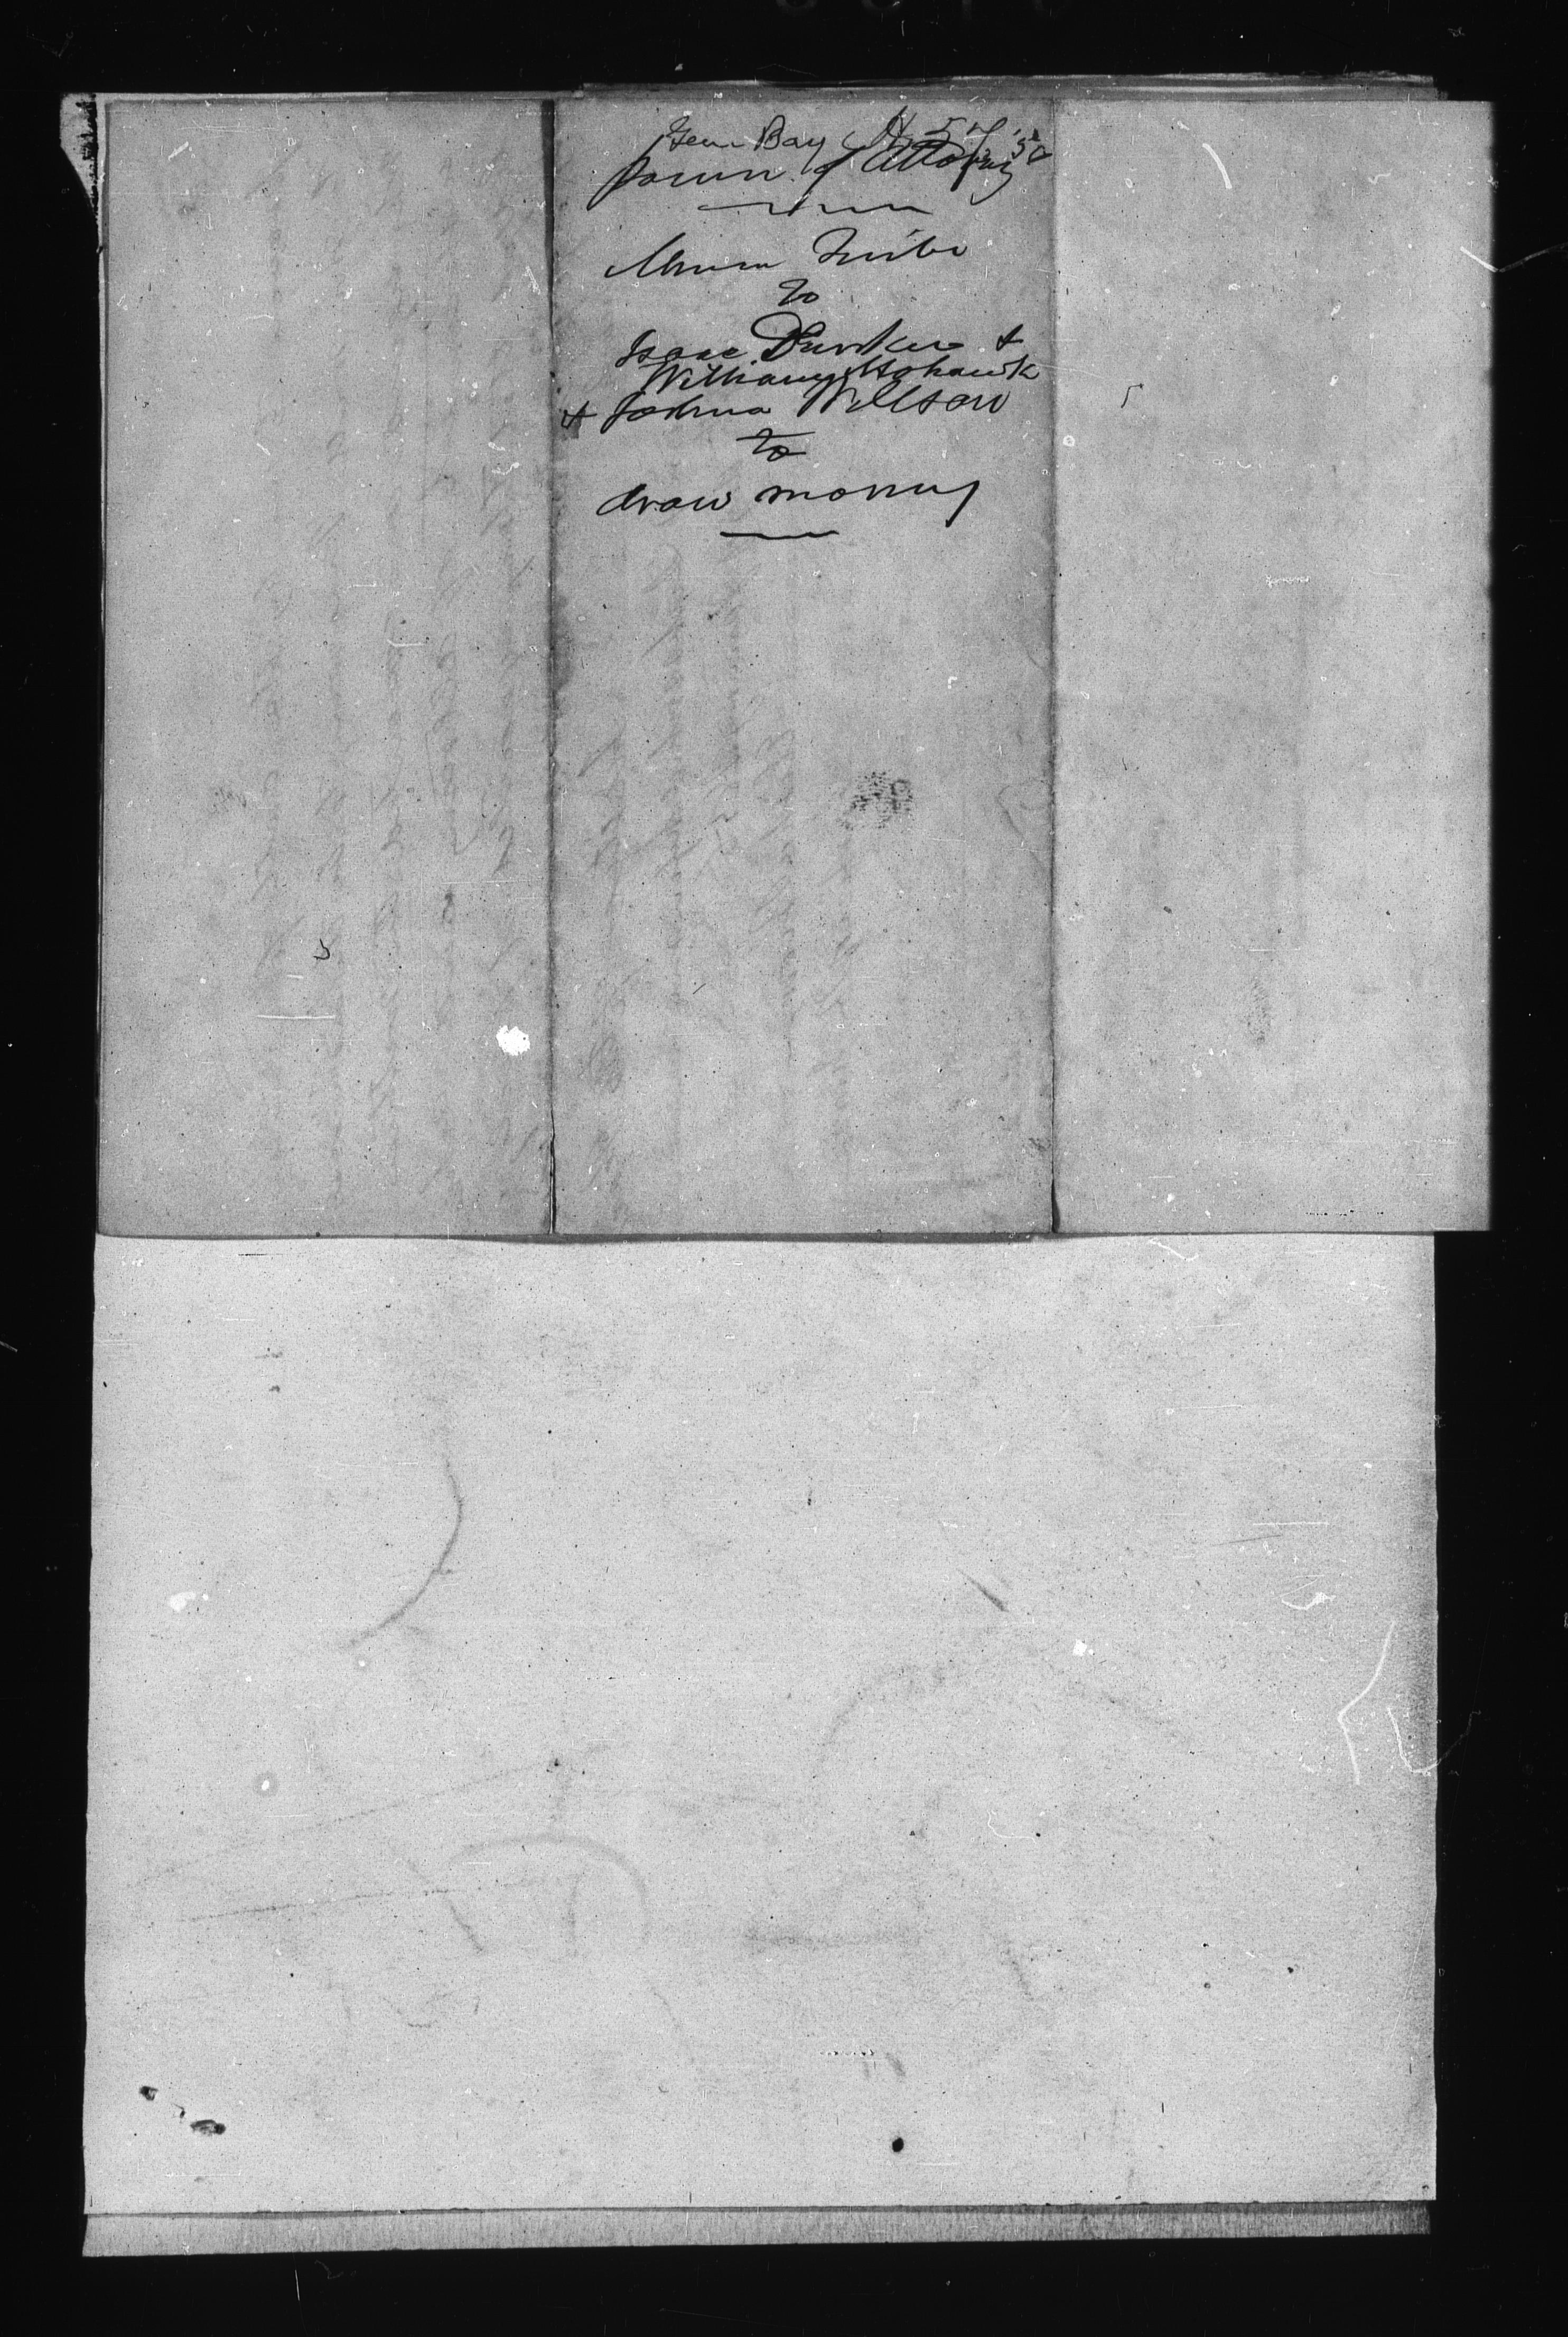 Green Bay H 57 '50
Power of Attorney
Tribe
to
Isaac &
William Mohawk
& Joshua Willson
to
draw money